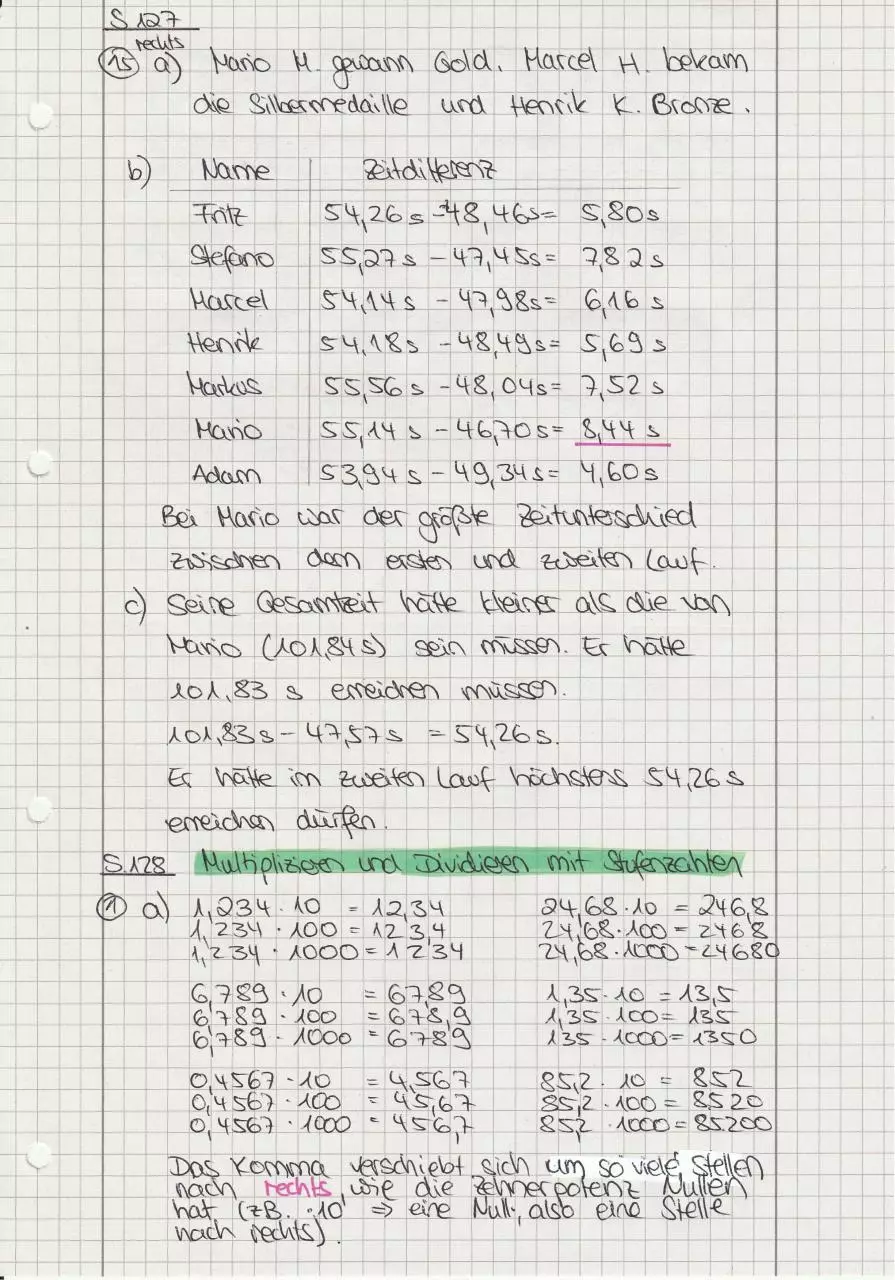 S.127
rechts
15 a) Mario M. gewann Gold. Marcel H. bekam
die Silbermedaille und Henrik K. Bronze.
b) Name Zeitdifferenz
Fritz 54,26s - 48,46s = 5,80s
Stefano 55,27s - 47,45s = 7,82s
Marcel 54,14s - 47,98s = 6,16s
Henrik 54,18s - 48,49s = 5,69s
Markus 55,56s - 48,04s = 7,52s
Mario 55,14s - 46,70s = 8,44s
Adam 53,94s - 49,34s = 4,60s
Bei Mario war der größte Zeitunterschied
zwischen dem ersten und zweiten Lauf.
c) Seine Gesamtzeit hätte kleiner als die von
Mario (101,84s) sein müssen. Er hätte
101,83 s erreichen müssen.
101,83s - 47,57s = 54,26s.
Er hätte im zweiten Lauf höchstens 54,26s
erreichen dürfen.
S.128 Multiplizieren und Dividieren mit Stufenzahlen
1 a) 1,234 · 10 = 12,34 24,68 · 10 = 246,8
1,234 · 100 = 123,4 24,68 · 100 = 2468
1,234 · 1000 = 1234 24,68 · 1000 = 24680
6,789 · 10 = 67,89 1,35 · 10 = 13,5
6,789 · 100 = 678,9 1,35 · 100 = 135
6,789 · 1000 = 6789 135 · 1000 = 1350
0,4567 · 10 = 4,567 85,2 · 10 = 852
0,4567 · 100 = 45,67 85,2 · 100 = 8520
0,4567 · 1000 = 456,7 85,2 · 1000 = 85200
Das Komma verschiebt sich um so viele Stellen
nach rechts, wie die Zehnerpotenz Nullen
hat (zB. ·10 ⇒ eine Null, also eine Stelle
nach rechts).